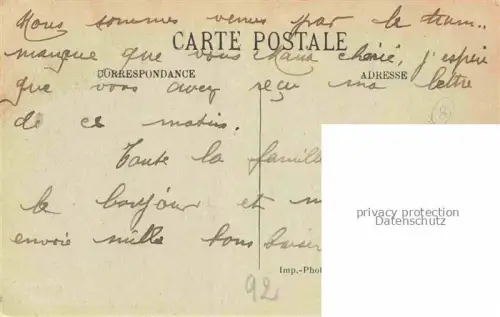 Nous sommes venus par le tram..
CARTE POSTALE
manque que vous Mama chérie, j'espère
CORRESPONDANCE
ADRESSE
que vous avez reçu ma lettre
de ce matin.
Toute la famill
le bonjour et m
envoie mille bons baiser
privacy protection
Datenschutz
Imp.-Phot
92